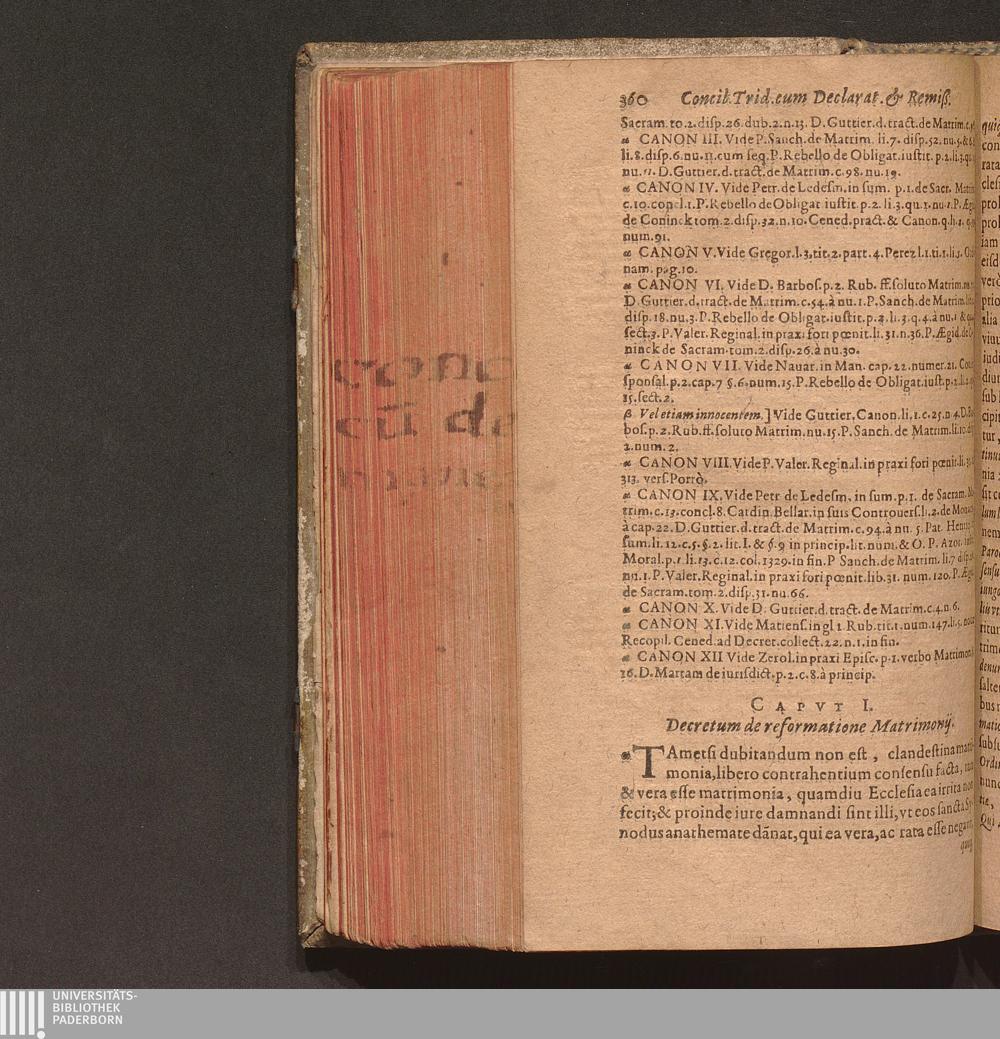 360 Concil. Trid. cum Declarat. & Remiß.
Sacram. to. 2. disp. 26. dub. 2. n. 13. D. Guttier. d. tract. de Matrim. c.
CANON III. Vide P. Sanch. de Matrim. li. 7. disp. 52. nu. 5. &
li. 8. disp. 6. nu. 11. cum seq. P. Rebello de Obligat. iustit. p. 2. li. 3. qu.
nu. 11. D. Guttier. d. tract. de Matrim. c. 98. nu. 19.
CANON IV. Vide Petr. de Ledesm. in sum. p. 1. de Sacr. Matrim
c. 10. concl. 1. P. Rebello de Obligat iustit. p. 2. li. 3. qu. 1. nu. 1. P. Ægi
de Coninck tom. 2. disp. 32. n. 10. Cened. pract. & Canon. q. li. 1.
num. 91.
CANON V. Vide Gregor. l. 3. tit. 2. part. 4. Perez l. 1. ti. 1. li. 5.
nam. pag. 10.
CANON VI. Vide D. Barbos. p. 2. Rub. ff. soluto Matrim.
D. Guttier. d. tract. de Matrim. c. 54. à nu. 1. P. Sanch. de Matrim.
disp. 18. nu. 3. P. Rebello de Obligat. iustit. p. 2. li. 3. q. 4. à nu. 1 &
sect. 3. P. Valer. Reginal. in praxi fori pœnit. li. 31. n. 36. P. Ægid. de Co
ninck de Sacram. tom. 2. disp. 26. à nu. 30.
CANON VII. Vide Nauar. in Man. cap. 22. numer. 21.
sponsal. p. 2. cap. 7 §. 6. num. 15. P. Rebello de Obligat. iust. p. 2. li. 2.
15. sect. 2.
β Vel etiam innocentem.] Vide Guttier. Canon. li. 1. c. 25. n 4. D. Bar
bos. p. 2. Rub. ff. soluto Matrim. nu. 15. P. Sanch. de Matrim. li. 10.
2. num. 2.
CANON VIII. Vide P. Valer. Reginal. in praxi fori pœnit. li. 31.
313. vers. Porrò.
CANON IX. Vide Petr de Ledesm. in sum. p. 1. de Sacram. Ma
trim. c. 13. concl. 8. Cardin. Bellar. in suis Controuers. li. 2. de Monach
à cap. 22. D. Guttier. d. tract. de Matrim. c. 94. à nu. 5. Pat. Henriq
sum. li. 12. c. 5. §. 2. lit. I. & §. 9 in princip. lit. num. & O. P. Azor.
Moral. p. 1 li. 13. c. 12. col. 1329. in fin. P Sanch. de Matrim. li. 7 disp.
nu. 1. P. Valer. Reginal. in praxi fori pœnit. lib. 31. num. 120. P. Ægi
de Sacram. tom. 2. disp. 31. nu. 66.
CANON X. Vide D. Guttier. d. tract. de Matrim. c. 4. n. 6.
CANON XI. Vide Matiens. in gl 1. Rub. tit. 1. num. 147. li. 5.
Recopil. Cened. ad Decret. collect. 22. n. 1. in fin.
CANON XII Vide Zerol. in praxi Episc. p. 1. verbo Matrimon.
16. D. Martam de iurisdict. p. 2. c. 8. à princip.
CAPVT I.
Decretum de reformatione Matrimonij.
TAmetsi dubitandum non est, clandestina matri
monia, libero contrahentium consensu facta,
& vera esse matrimonia, quamdiu Ecclesia ea irrita non
fecit; & proinde iure damnandi sint illi, vt eos sancta Sy
nodus anathemate dānat, qui ea vera, ac rata esse negant,
conc
cū de
UNIVERSITÄTS-
BIBLIOTHEK
PADERBORN